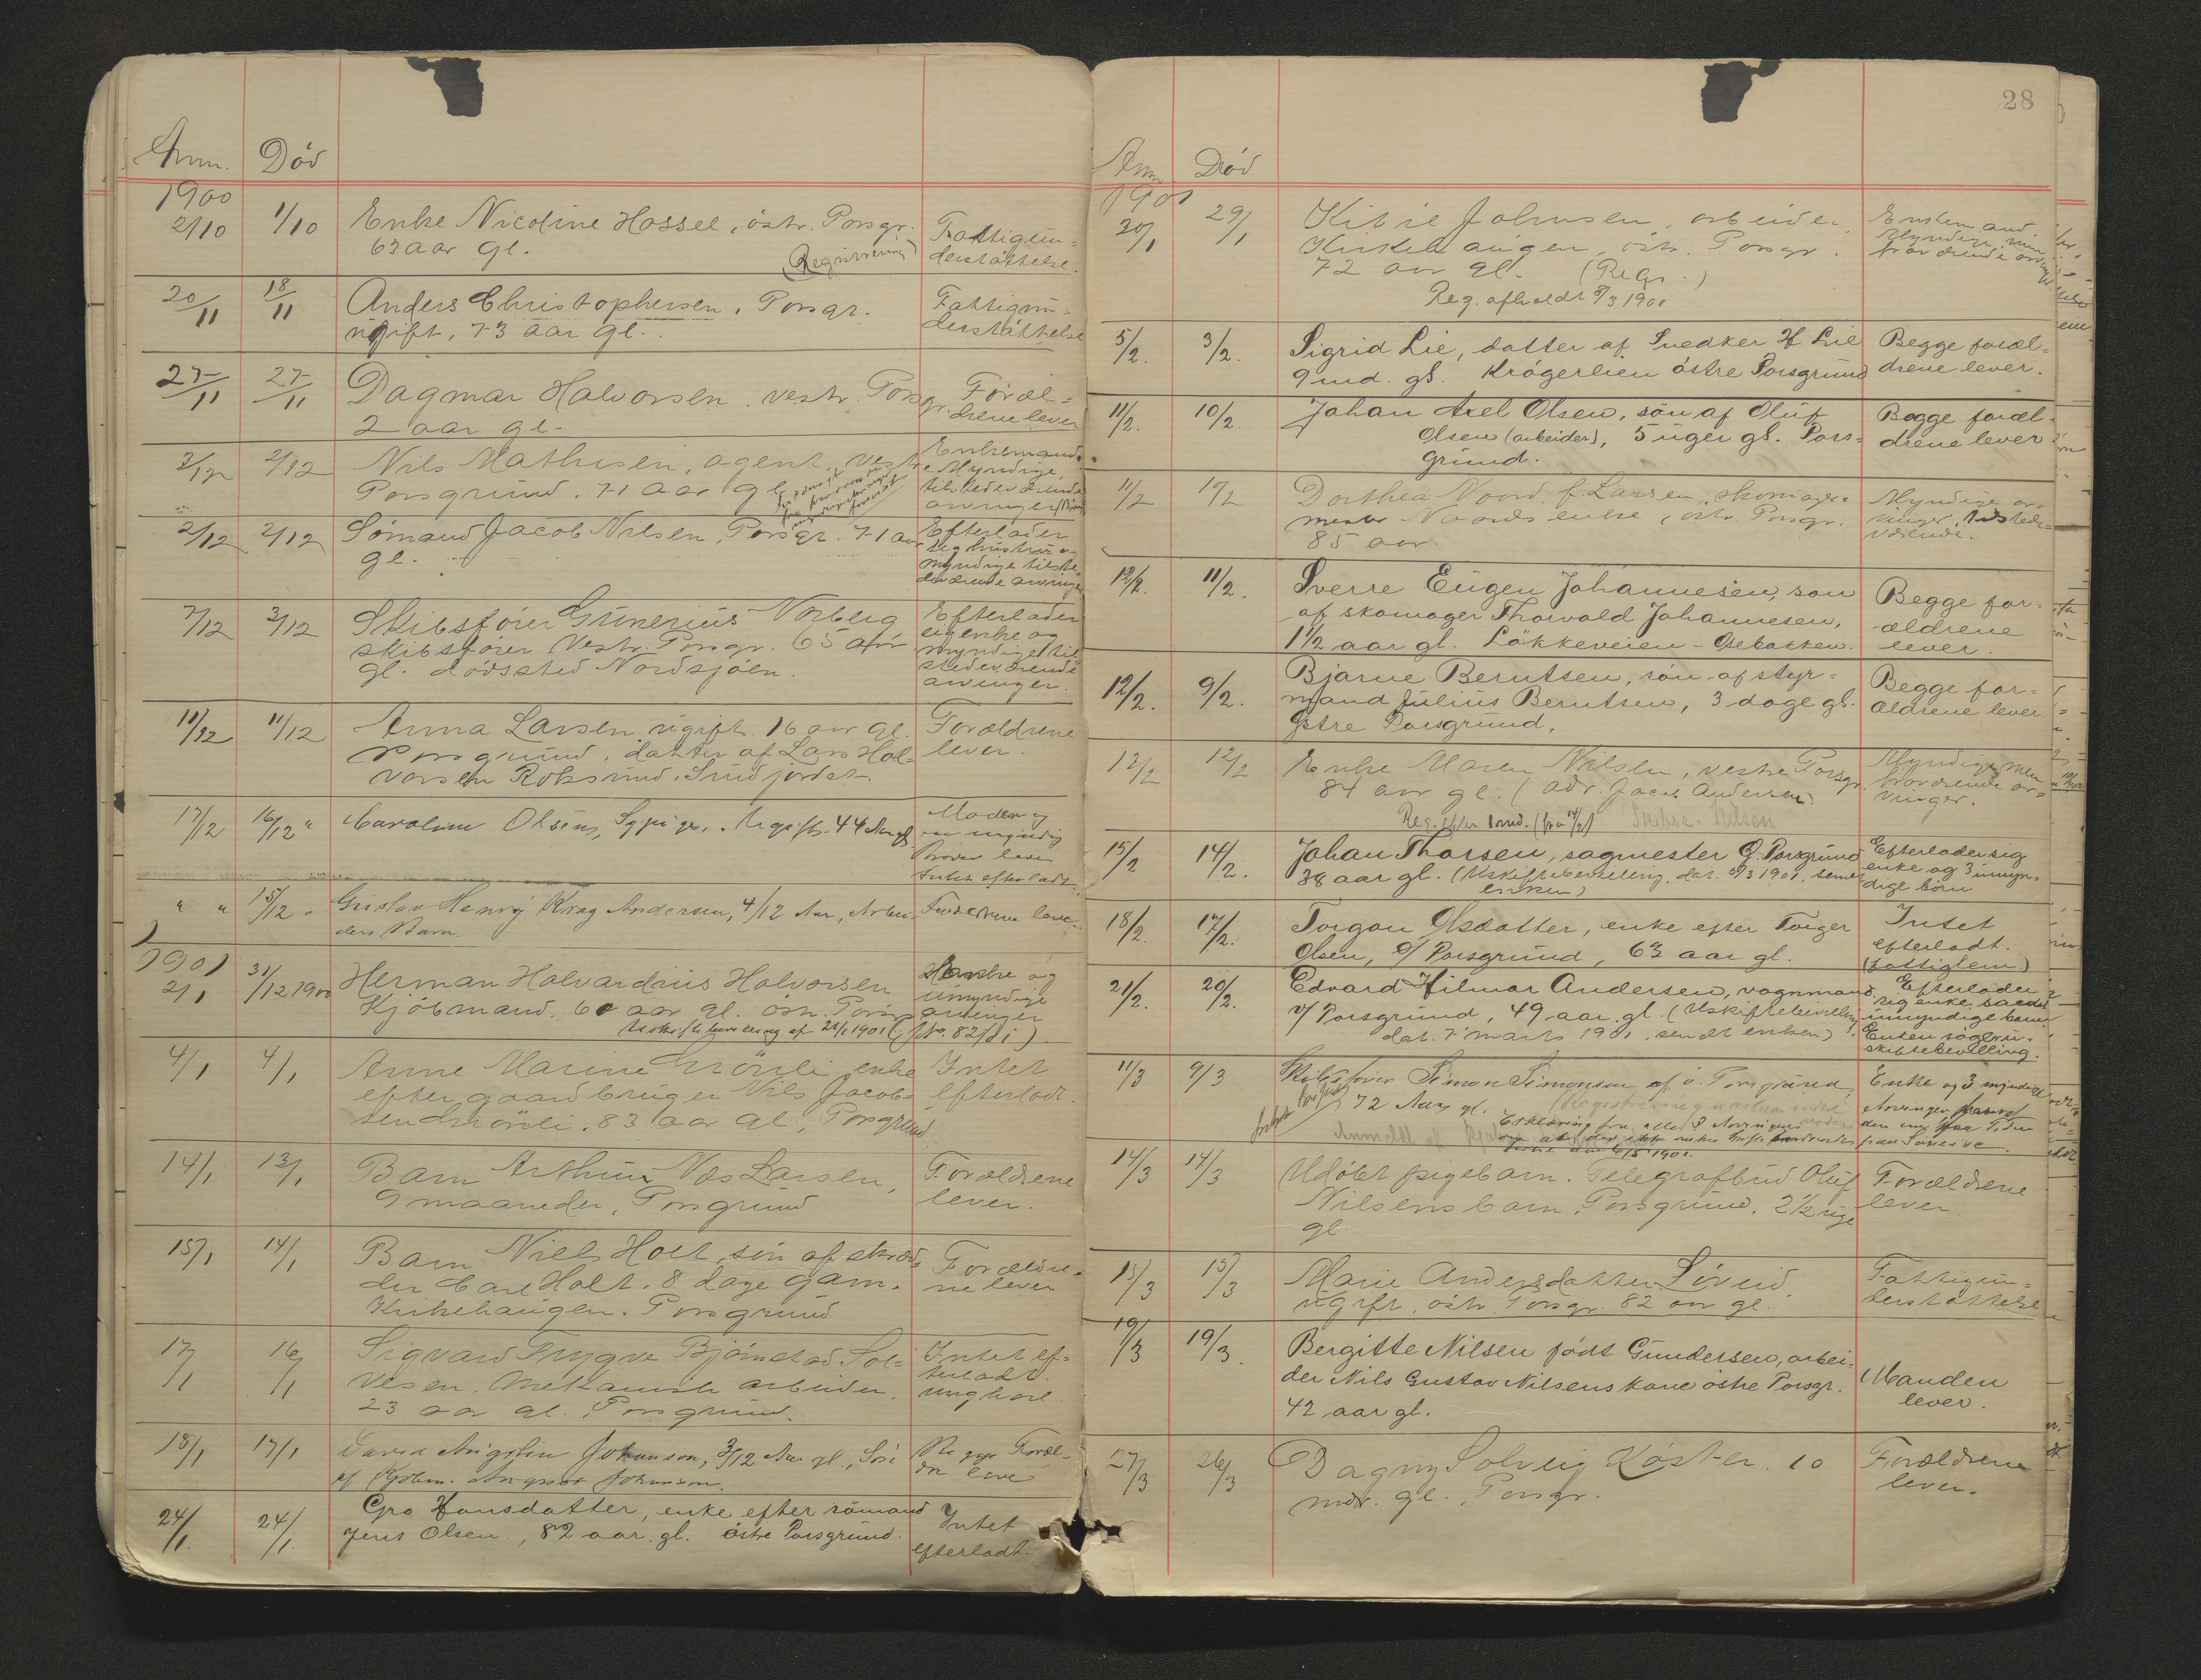 Anm. Död
1900
2/10 1/10 Enke Nicoline Hassel, östr. Porsgr. Fattigun=
63 aar gl. (Registrering) derstöttelse.
20/11 18/11 Anders Christophersen, Porsgr. Fattigun=
ugift, 73 aar gl. derstöttelse
27/11 27/11 Dagmar Halvorsen, vestr. Porsgr. Foræl=
2 aar gl. drene lever
2/12 2/12 Nils Mathisen, agent, vestre Enkemand.
Porsgrund, 71 aar gl. Myndige
tilstedeværende
arvinger
2/12 2/12 Sömand Jacob Nilsen, Porsgr. 71 aar Efterlader
gl. sig hustru og
myndige tilste=
deværende arvinger
7/12 3/12 Skibsförer Gunerius Norberg Efterlader
skibsförer Vestr. Porsgr. 65 aar sig enke og
gl. dödssted Nordsjöen. myndige til
stedeværende
arvinger.
11/12 11/12 Anna Larsen, ugift. 16 aar gl. Forældrene
Porsgrund, datter af Lars Hal= lever.
vorsen Roksund,
17/12 16/12 " Caroline Olsen, Sypige, Ugift. 44 Aar gl. Moder og
en myndig
Broder lever
Intet efterladt
" " 15/12 " Gustav Henry Krag Andersen, 4/12 Aar, Arbei- Forældrene lever
ders Barn.
1901
2/1 31/12 1900 Herman Halvardius Halvorsen Hustru og
Kjöbmand. 60 aar gl. östr. Porsgr umyndige
arvinger
Uskiftebevilling af 21/1 1901 (J. No. 82/01)
4/1 4/1 Anne Marine enke Intet
efter gaardbruger Nils Jacob= efterladt.
sen 83 aar gl., Porsgrund
14/1 13/1 Barn Arthur Næs Larsen, Forældrene
9 maaneder, Porsgrund lever.
15/1 14/1 Barn Niels Holt, sön af skræd= Forældre=
der Carl Holt. 8 dage gam. ne lever
Kirkehaugen. Porsgrund
17/1 16/1 Sigvard Trygve Björnstad Sol= Intet ef=
vesen, mekanisk arbeider, terladt.
23 aar gl. Porsgrund. ungkarl
18/1 17/1 David Johanson, 3/12 Aar gl., Sön Begge Foræl-
af Johanson. dre lever
24/1 24/1 Gro Hansdatter, enke efter sömand Intet
Jens Olsen, 82 aar gl. östre Porsgrund. efterladt.
28
Anm Död
1901
30/1 29/1 Johnsen, arbeider, Enkemand.
Kirkehaugen, östr. Porsgr. Myndige,
72 aar gl. (Regr.) fraværende
Reg. afholdt 8/3 1901
5/2. 3/2. Sigrid Lie, datter af Snedker H Lie Begge foræl=
9 md. gl. Krögerlien östre Porsgrund drene lever.
11/2. 10/2. Johan Axel Olsen, sön af Oluf Begge foræl=
Olsen (arbeider), 5 uger gl. Pors= drene lever
grund.
11/2 Dorthea Noord f. Larsen, skomager= Myndige ar=
mester Noords enke, östr. Porsgr. vinger, tilstede=
85 aar værende.
12/2. 11/2. Sverre Eugen Johannesen, sön Begge for=
af skomager Thorvald Johannesen, ældrene
1 1/2 aar gl. Lökkeveien - Osebakken. lever.
12/2. 9/2. Bjarne Berntsen, sön af styr= Begge for=
mand Julius Berntsen, 3 dage gl. ældrene lever.
Östre Porsgrund.
13/2 12/2 Enke Maren Nilsen, vestre Porsgr. Myndige men
84 aar gl. (adr. Jacob Andersen) fraværende ar=
vinger.
15/2 14/2. Johan Thorsen, sagmester Ö. Porsgrund Efterlader sig
38 aar gl. (Uskiftebevilling, dat. 1901, sendt enke og 3 umyn=
enken) dige börn
18/2. 17/2. Torgon Olsdatter, enke efter Torger Intet
Olsen, Ö/ Porsgrund, 63 aar gl. efterladt.
(fattiglem)
21/2. 20/2. Edvard Hilmar Andersen, vognmand Efterlader
v/ Porsgrund, 49 aar gl. (Uskiftebevilling sig enke samt
dat. 7' marts 1901, sendt enken) umyndige börn
Enken sögt u=
skiftebevilling.
11/3 9/3 Skibsförer Simon Simonsen af ö. Porsgrund, Enke og 3 myndige
72 Aar gl. Arvinger
Erklæring fra alle 3 Arvinger
14/3 14/3 Udöbt pigebarn. Telegrafbud Oluf Forældrene
Nilsens barn, Porsgrund, 2 1/2 uge lever
gl
15/3 15/3 Marie Andersdatter Fattigun=
ugift, östr. Porsgr. 82 aar gl. derstöttelse
19/3 19/3. Bergitte Nilsen födt Gundersen, arbei=
der Nils Gustav Nilsens kone östre Porsgr. Manden
42 aar gl. lever.
27/3 26/3 Dagny Solveig Köster. 10 Forældrene
mdr. gl. Porsgr. lever.